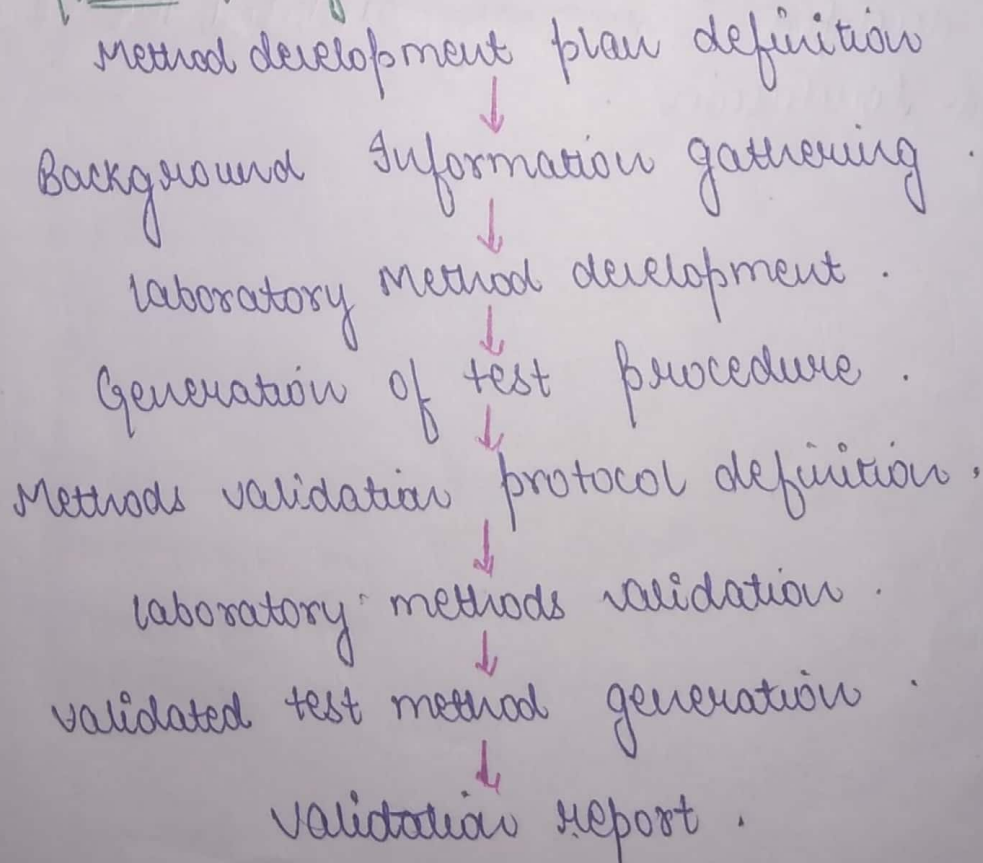 Method development plan definition
↓
Background Information gathering .
↓
laboratory Method development .
↓
Generation of test procedure .
↓
Methods validation protocol definition .
↓
laboratory methods validation .
↓
validated test method generation .
↓
validation report .